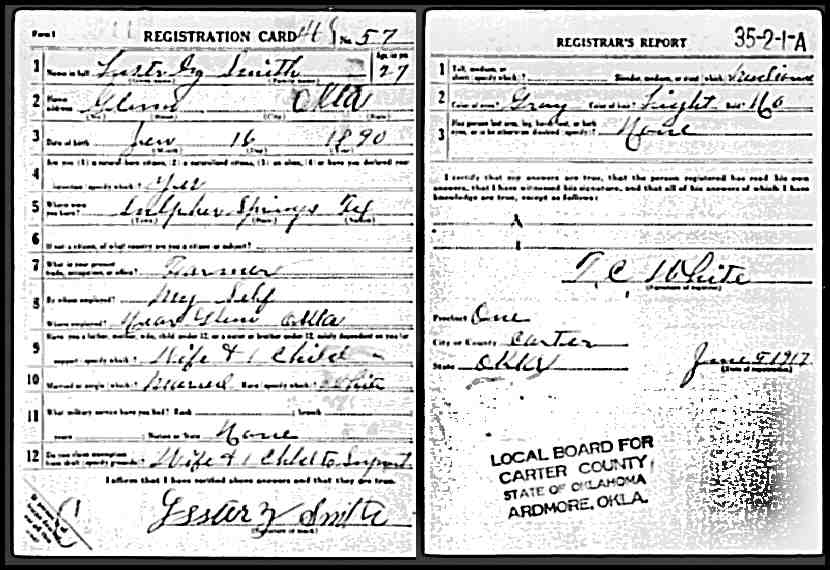 Form 1 REGISTRATION CARD No. 57
1 Name in full Smith Age, in yrs. 27
2 Home address Glenn Okla
3 Date of birth Jan 16 1890
4 Are you (1) a natural born citizen, (2) a naturalized citizen, (3) an alien, (4) or have you declared your
intention (specify which)? Yes
5 Where were you born? Sulpher Springs Tex
6 If not a citizen, of what country are you a citizen or subject?
7 What is your present trade, occupation, or office? Farmer
8 By whom employed? My Self
Where employed? Near Glenn Okla
9 Have you a father, mother, wife, child under 12, or a sister or brother under 12, solely dependent on you for
support (specify which)? Wife & 1 Child
10 Married or single (which)? Married Race (specify which)? White
11 What military service have you had? Rank ; branch
years ; Nation or State None
12 Do you claim exemption from draft (specify grounds)? Wife & 1 Child to Support
I affirm that I have verified above answers and that they are true.
Lester Smith
REGISTRAR'S REPORT 35-2-1-A
1 Tall, medium, or short (specify which)? Slender, medium, or stout (which)?
2 Color of eyes? Gray Color of hair? Light Bald? No
3 Has person lost arm, leg, hand, foot, or both
eyes, or is he otherwise disabled (specify)? None
I certify that my answers are true, that the person registered has read his own
answers, that I have witnessed his signature, and that all of his answers of which I have
knowledge are true, except as follows:
T. C. White
(Signature of registrar)
Precinct One
City or County Carter
State Okla
June 5 1917
(Date of registration)
LOCAL BOARD FOR
CARTER COUNTY
STATE OF OKLAHOMA
ARDMORE, OKLA.